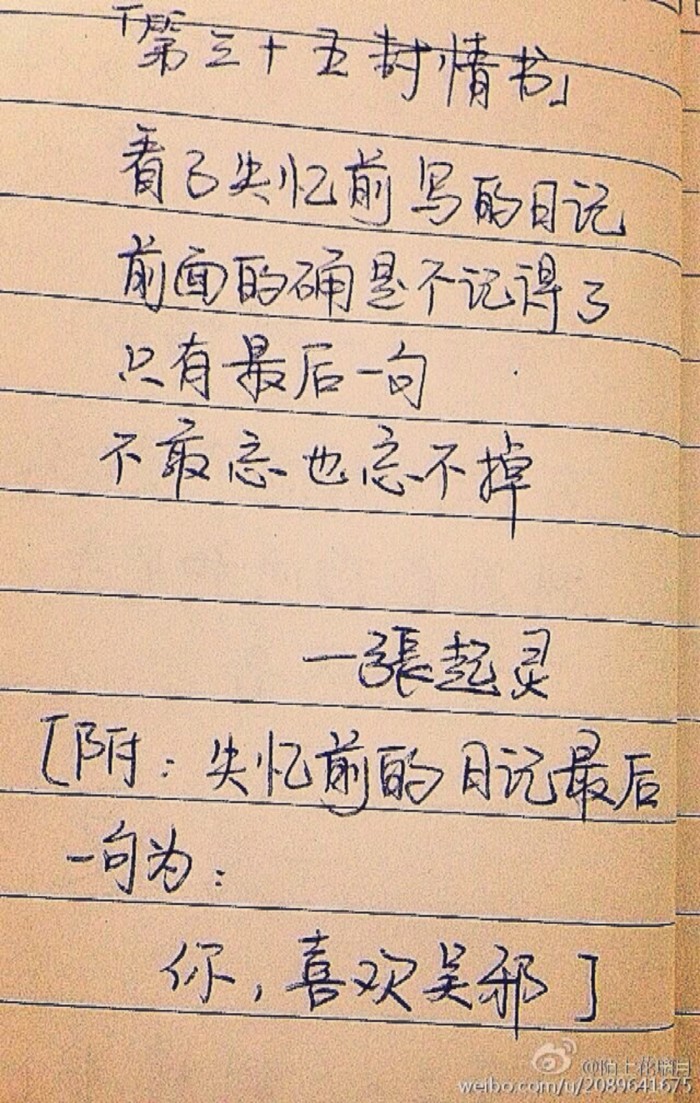 「第三十五封情书」
看了失忆前写的日记
前面的确是不记得了
只有最后一句
不敢忘也忘不掉
—張起灵
[附：失忆前的日记最后
一句为：
你，喜欢吴邪]
weibo.com/u/2089641675